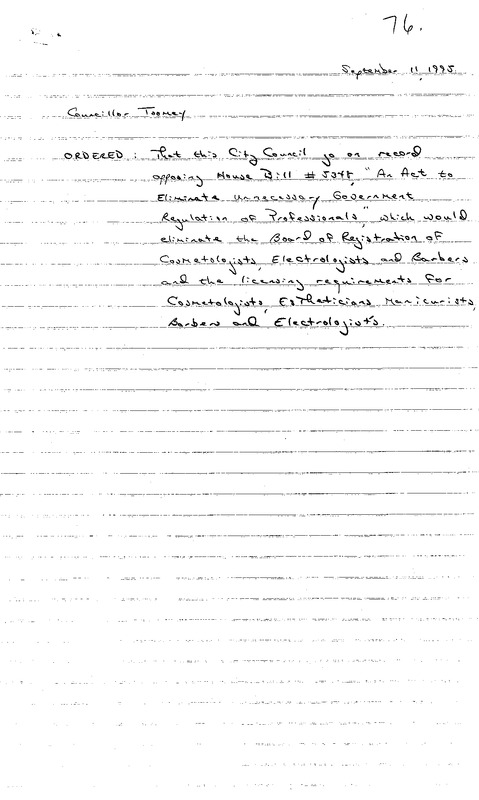 76.
September 11, 1995
Councillor Toomey
ORDERED: That this City Council go on record
opposing House Bill # "An Act to
Eliminate Unnecessary Government
Regulation of Professionals," which would
eliminate the Board of Registration of
Cosmetologists, Electrologists and Barbers
and the licensing requirements for
Cosmetologists, Estheticians, Manicurists,
Barbers and Electrologists.